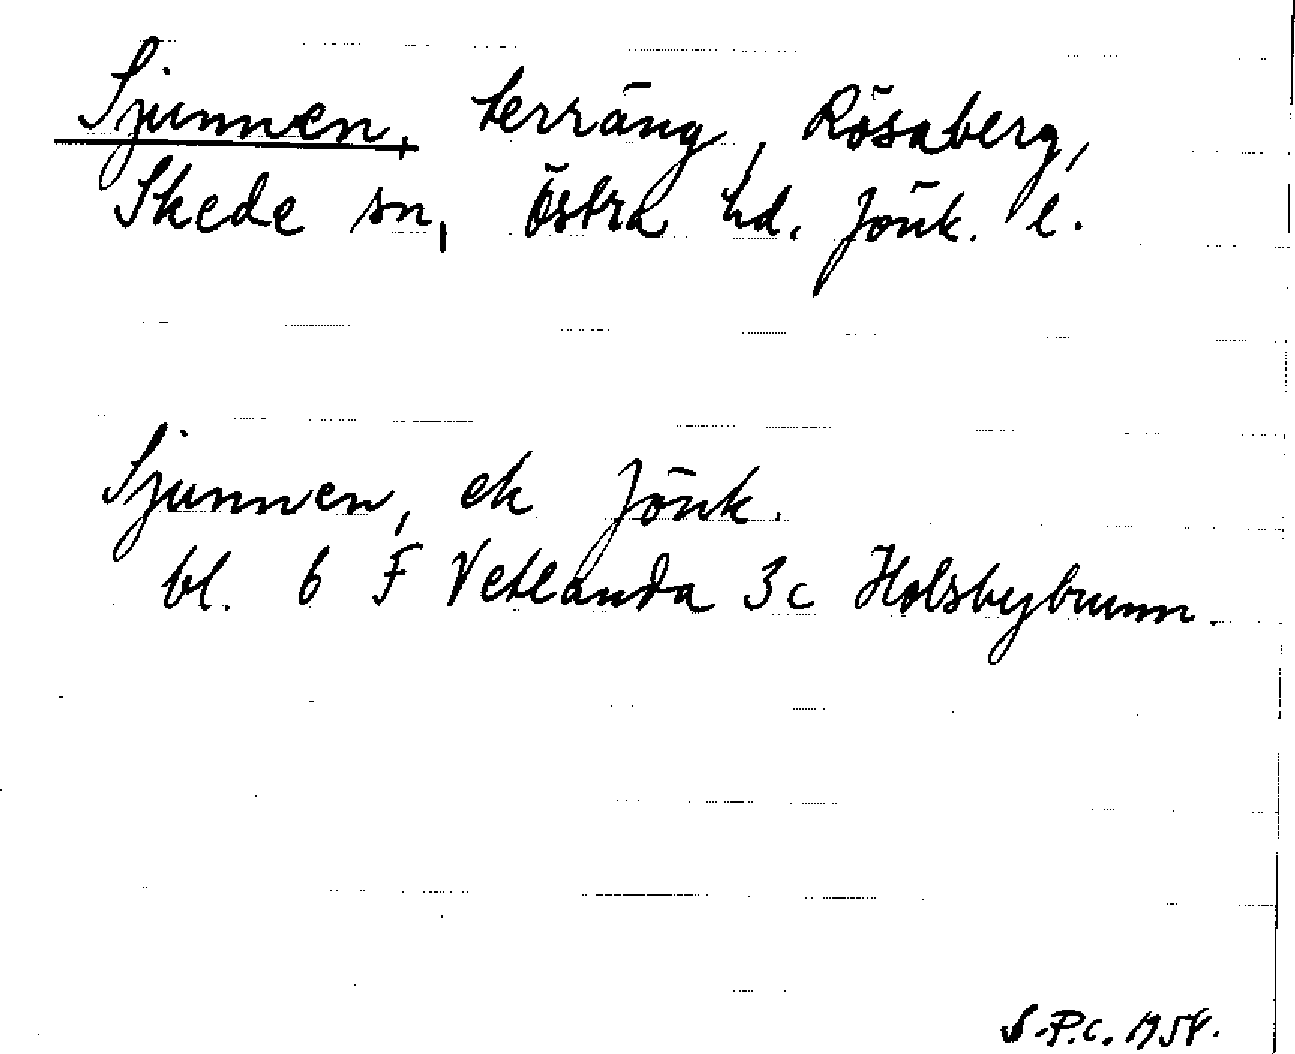 Sjunnen, terräng, Rösaberg,
Skede sn, Östra hd. Jönk. l.
Sjunnen, ek Jönk.
bl. 6 F Vetlanda 3c Holsbybrunn.
S.P.C. 1954.